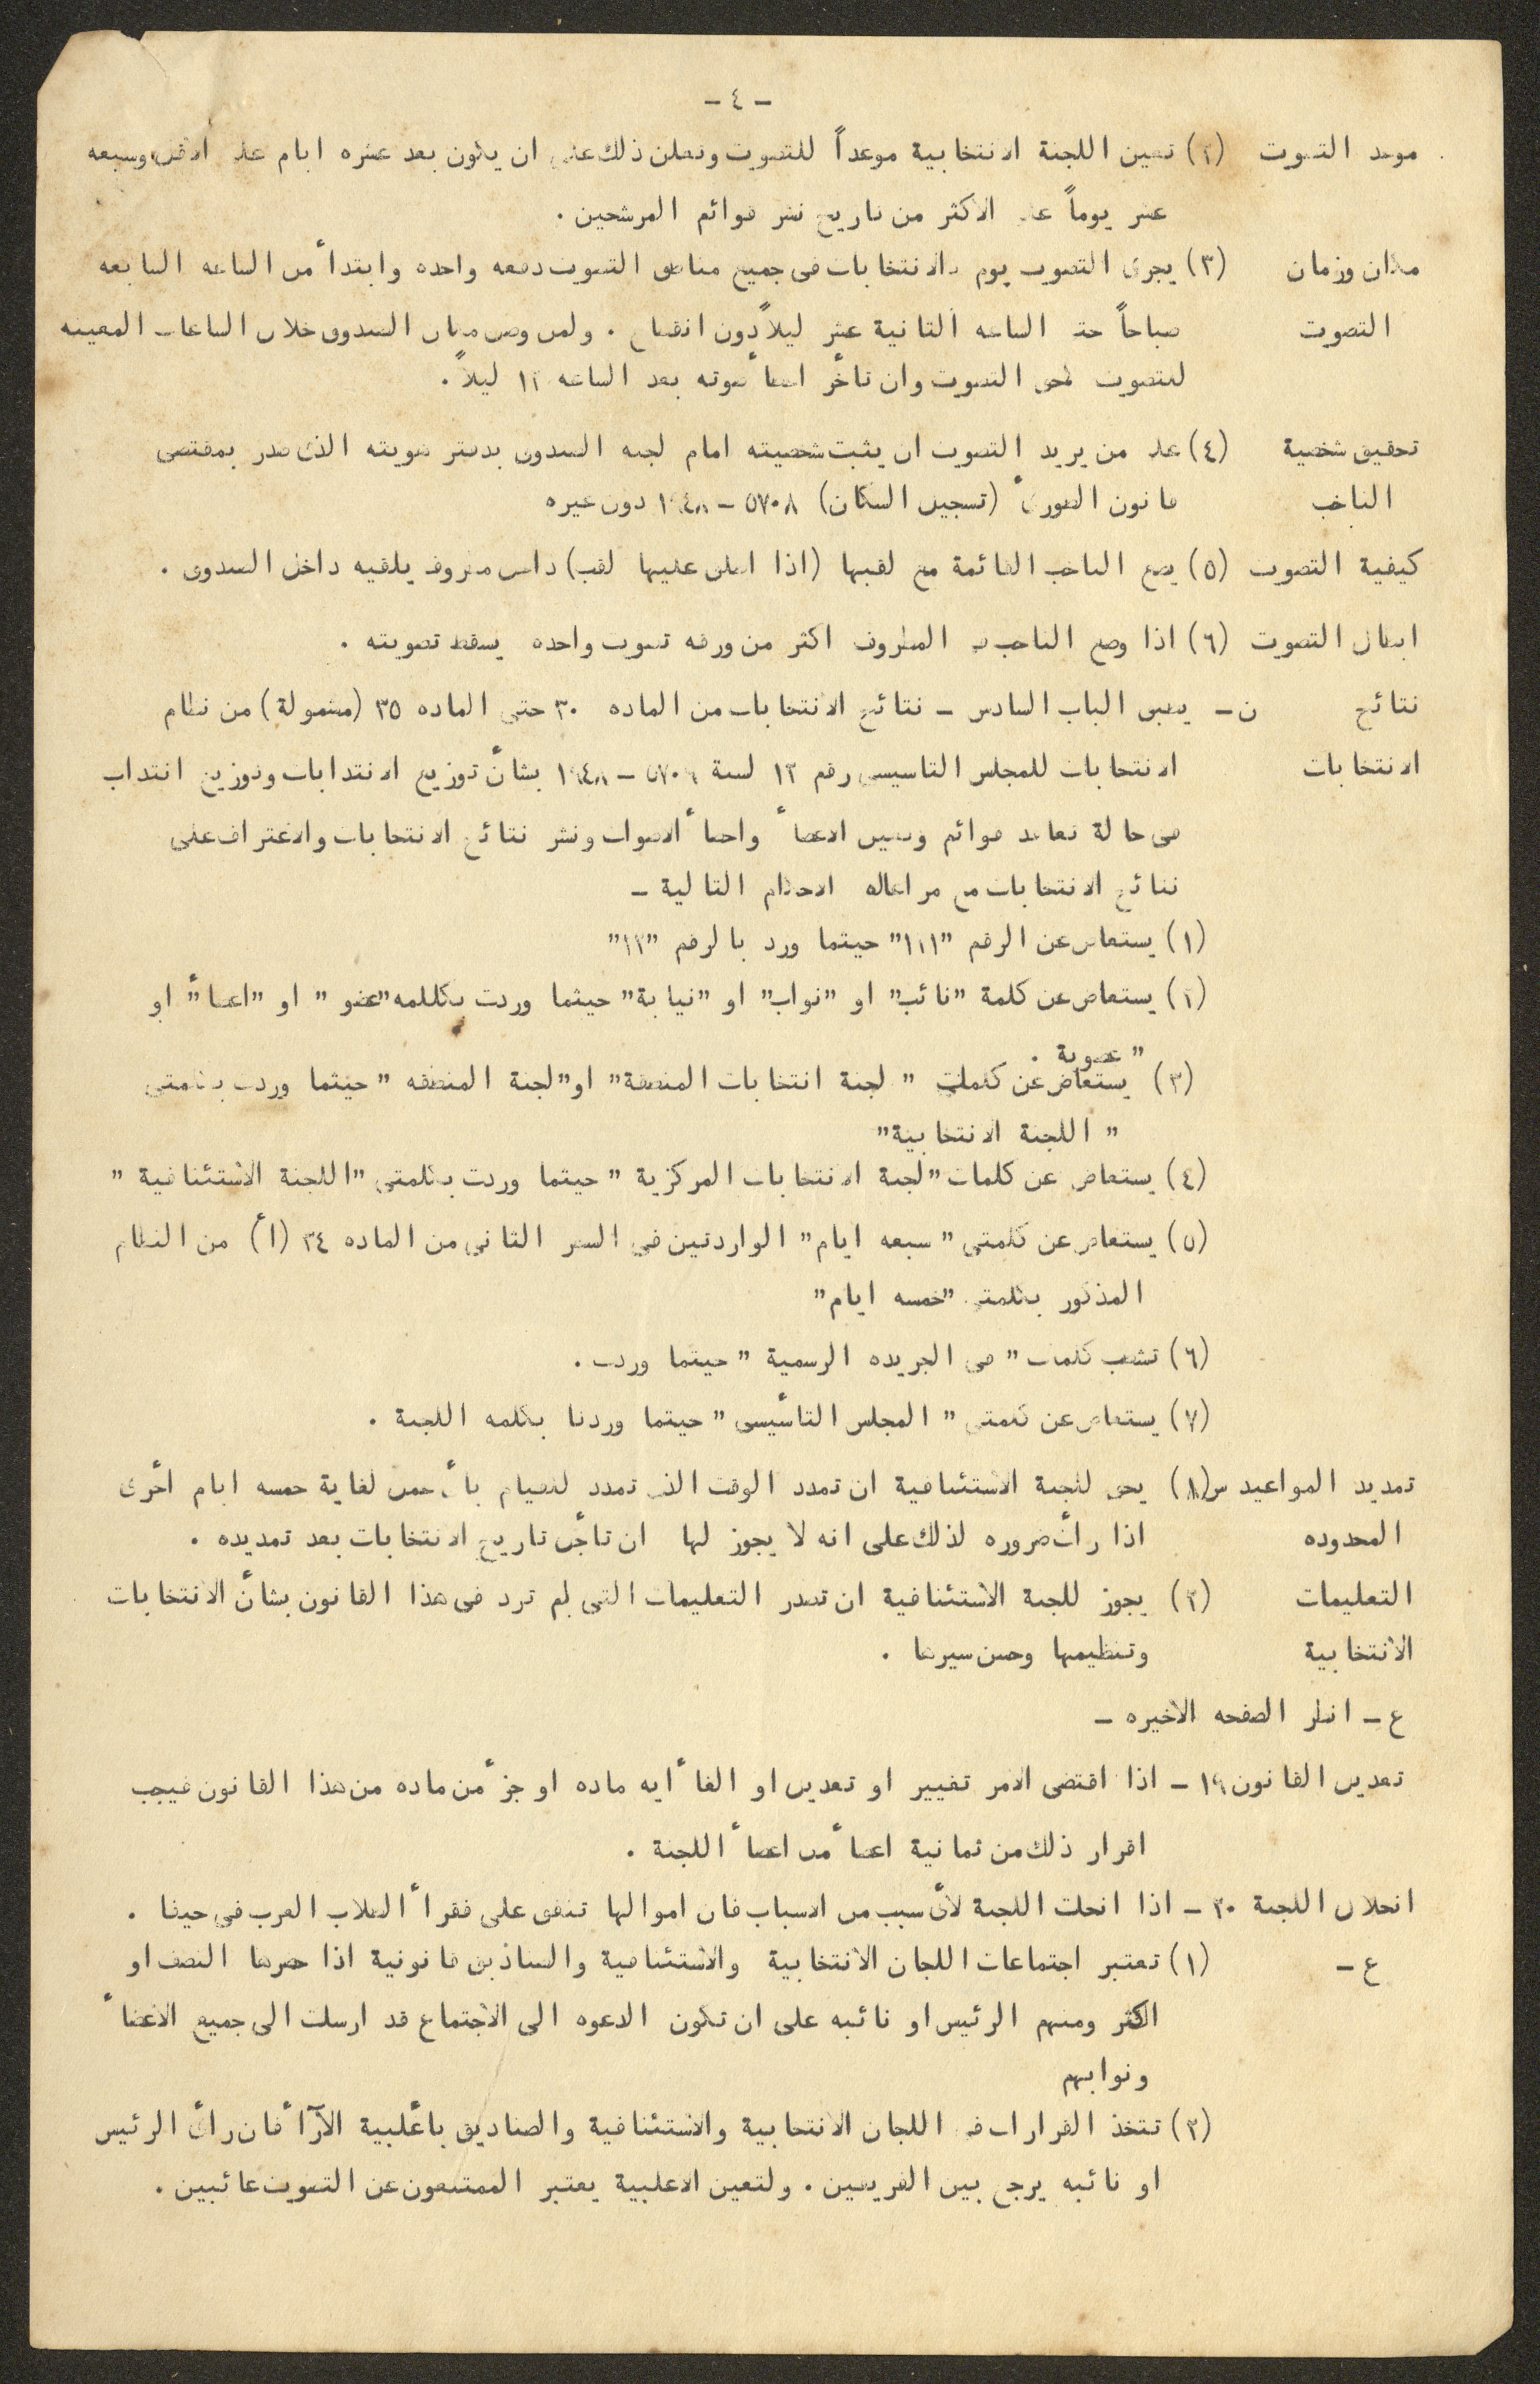 - ٤ -
موعد التصوت (٢) تعين اللجنة الانتخابية موعداً للتصويت وتعلن ذلك على ان يكون بعد عشره ايام على الاقل وسبعه
عشر يوماً على الاكثر من تاريخ نشر قوائم المرشحين .
مكان وزمان (٣) يجرى التصويت يوم الانتخابات فى جميع مناطق التصويت دفعه واحده وابتدأ من الساعه السابعه
التصوت صباحاً حتى الساعه الثانية عشر ليلاً دون انقطاع . ولمن وصل مكان الصندوق خلال الساعات المعينه
للتصويت الحق التصويت وان تأخر اعطأ صوته بعد الساعه ١٢ ليلاً .
تحقيق شخصية (٤) على من يريد التصويت ان يثبت شخصيته امام لجنه الصندوق بدفتر هويته الذى صدر بمقتضى
الناخب قانون الطورىٔ (تسجيل السكان) ٥٧٠٨ - ١٩٤٨ دون غيره
كيفية التصويت (٥) يضع الناخب القائمة مع لقبها (اذا اطلق عليها لقب) داخل مظروف يلقيه داخل الصندوق .
ابطال التصويت (٦) اذا وضع الناخب فى المظروف اكثر من ورقه تصويت واحده يسقط تصويته .
نتائج ن - يطبق الباب السادس - نتائج الانتخابات من الماده ٣٠ حتى الماده ٣٥ (مشمولة) من نظام
الانتخابات الانتخابات للمجلس التاسيسى رقم ١٢ لسنة ٥٧٠٩ - ١٩٤٨ بشأن توزيع الانتدابات وتوزيع انتداب
فى حالة تعاقد قوائم وتعيين الاعضأ واحصأ الاصوات ونشر نتائج الانتخابات والاعتراف على
نتائج الانتخابات مع مراعاة الاحكام التالية -
(١) يستعاض عن الرقم "١٢١" حيثما ورد بالرقم "١٣"
(٢) يستعاض عن كلمة "نائب" او "نواب" او "نيابة" حيثما وردت بكلمه "عضو" او "اعضأ" او
"عضوية .
(٣) يستعاض عن كلمات " لجنة انتخابات المنطقة" او "لجنة المنطقه " حيثما وردت بكلمتى
" اللجنة الانتخابية"
(٤) يستعاض عن كلمات "لجنة الانتخابات المركزية " حيثما وردت بكلمتى "اللجنة الاستئنافية "
(٥) يستعاض عن كلمتى " سبعه ايام" الواردتين فى السطر الثانى من الماده ٣٤ (أ) من النظام
المذكور بكلمتى "خمسه ايام"
(٦) تشطب كلمات " فى الجريده الرسمية " حيثما وردت .
(٧) يستعاض عن كلمتى " المجلس التأسيسى " حيثما وردتا بكلمه اللجنة .
تمديد المواعيد س (١) يحق للجنة الاستئنافية ان تمدد الوقت الذى تمدد للقيام بأى عمل لغاية خمسه ايام اخرى
المحدوده اذا رأت ضروره لذلك على انه لا يجوز لها ان تأجل تاريخ الانتخابات بعد تمديده .
التعليمات (٢) يجوز للجنة الاستئنافية ان تصدر التعليمات التى لم ترد فى هذا القانون بشأن الانتخابات
الانتخابية وتنظيمها وحسن سيرها .
ع - انظر الصفحه الاخيره -
تعديل القانون ١٩ - اذا اقتضى الامر تغيير او تعديل او الغأ ايه ماده او جزٔ من ماده من هذا القانون فيجب
اقرار ذلك من ثمانية اعضأ من اعضأ اللجنة .
انحلال اللجنة ٢٠ - اذا انحلت اللجنة لأى سبب من الاسباب فان اموالها تنفق على فقرأ الطلاب العرب فى حيفا .
ع - (١) تعتبر اجتماعات اللجان الانتخابية والاستئنافية والصناديق قانونية اذا حضرها النصف او
اكثر ومنهم الرئيس او نائبه على ان تكون الدعوه الى الاجتماع قد ارسلت الى جميع الاعضأ
ونوابهم
(٢) تتخذ القرارات فى اللجان الانتخابية والاستئنافية والصناديق بأغلبية الآرأ فان رأى الرئيس
او نائبه يرجح بين الفريقين . ولتعين الاغلبية يعتبر الممتنعون عن التصويت غائبين .